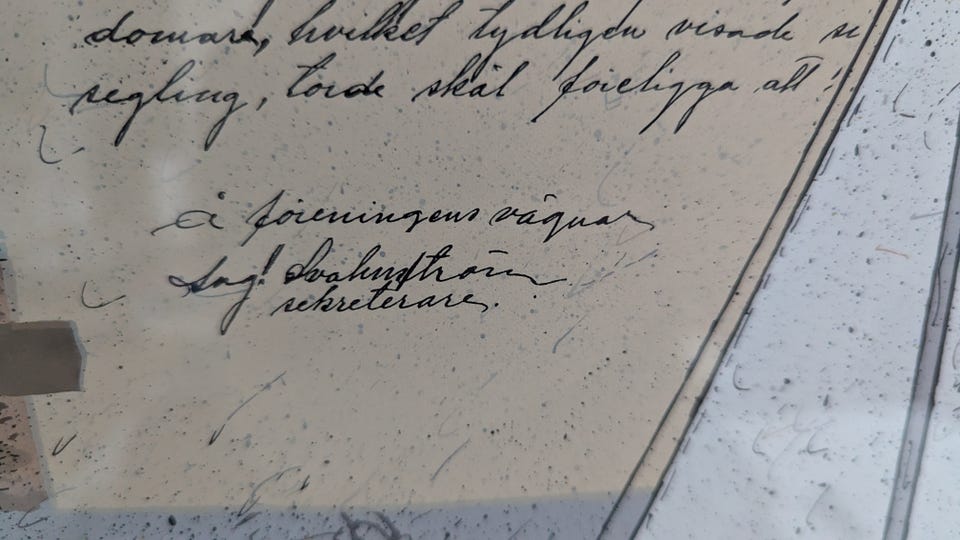 domare, hvilket tydligen visade
segling, torde skäl föreligga att
å föreningens vägnar
Svahnström
sekreterare.